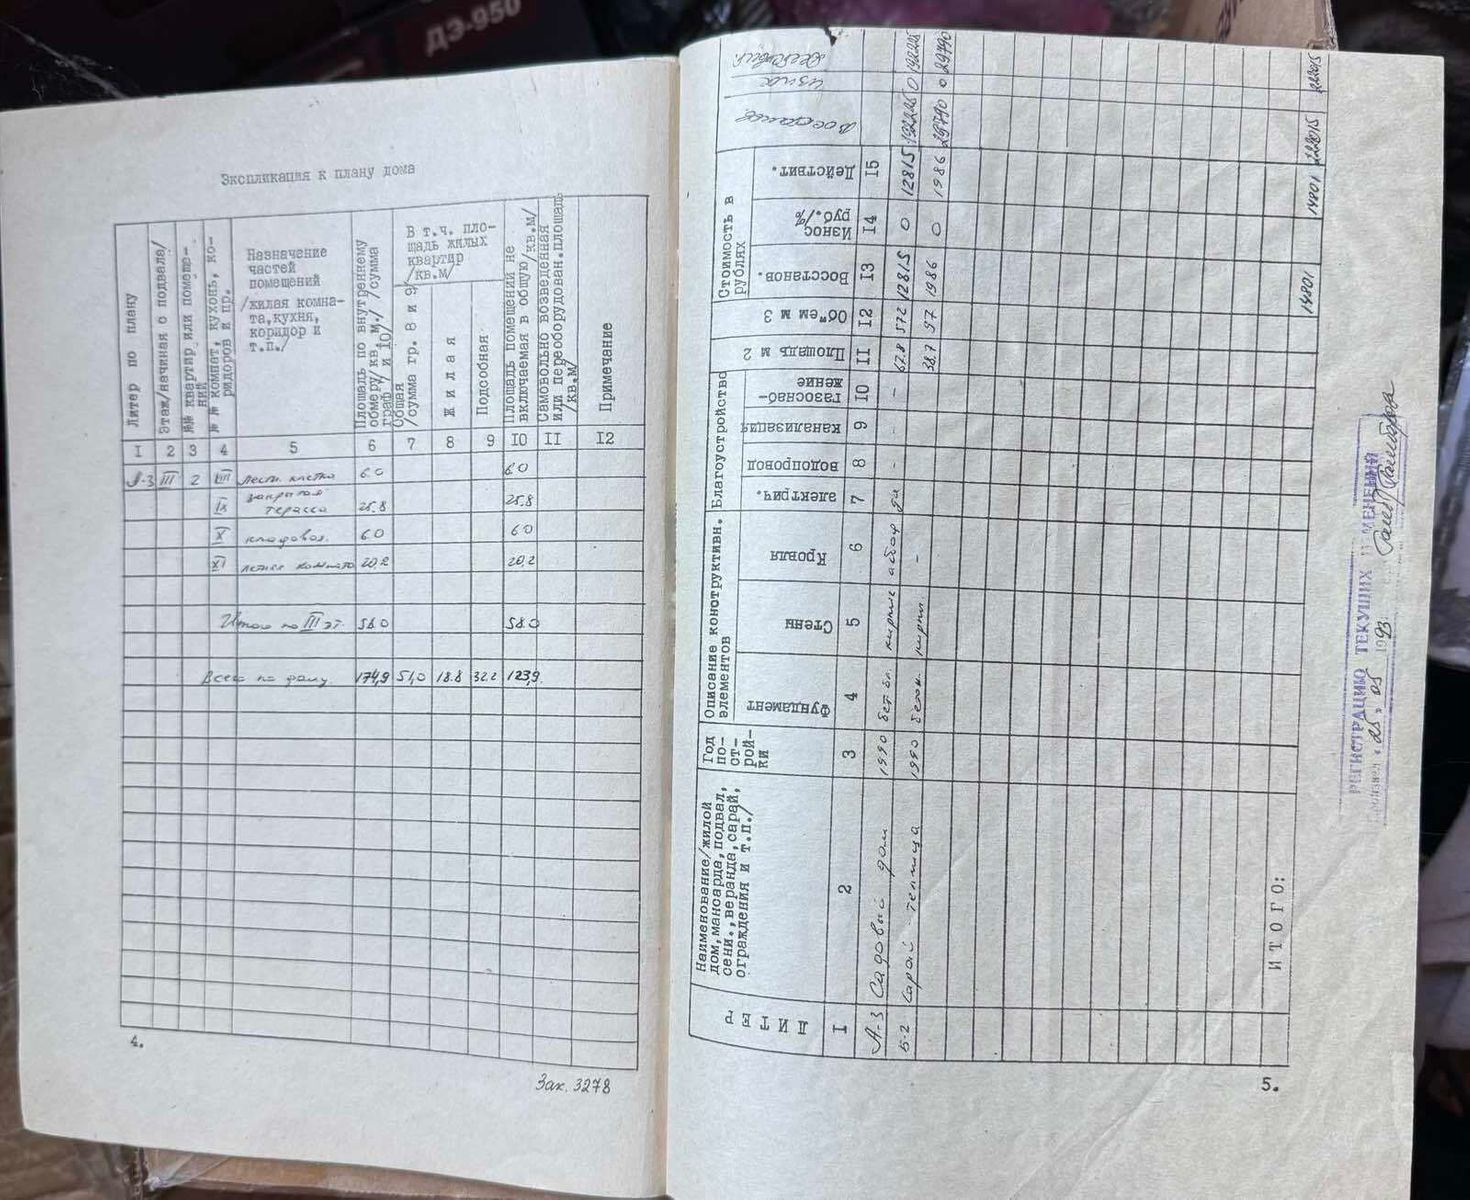 ДЭ-950
Экспликация к плану дома
Литер по плану
Этаж/начиная с подвала/
№№ квартир или помеще-
ний
№ № комнат, кухонь, ко-
ридоров и пр.
Назначение
частей
помещений
/жилая комна-
та,кухня,
коридор и
т.п./
Площадь по внутреннему
обмеру/кв. м./ /сумма
граф 7 и 10/
В т.ч. пло-
щадь жилых
квартир
/кв.м/
Общая
/сумма гр. 8 и 9/
Жилая
Подсобная
Площадь помещений не
включаемая в общую/кв.м/
Самовольно возведенная
или переоборудован.площадь
/кв.м/
Примечание
I 2 3 4 5 6 7 8 9 I0 II I2
А-3 III 2 VIII лестн. клетка 6.0 6.0
IX закрытая
терасса 25.8 25.8
X кладовая. 6.0 6.0
XI летняя комната 20,2 20,2
Итого по III эт. 58.0 58.0
Всего по дому. 174,9 51,0 18.8 32.2 123,9
4.
Зак. 3278
ЛИТЕР
Наименование/жилой
дом,мансарда,подвал,
сени.,веранда,сарай,
ограждения и т.п./
Год
по-
ст-
рой-
ки
Описание конструктивн.
элементов
Фундамент
Стены
Кровля
Благоустройство
электрич.
водопровод
канализация
газоснаб-
жение
Площадь м 2
Об"ем м 3
Стоимость в
рублях
Восстанов.
Износ
руб./%
Действит.
износ
I 2 3 4 5 6 7 8 9 I0 II I2 I3 I4 I5
А-3 Садовый дом 1990 бет.бл. кирпич да - - 67.8 572 12815 0 12815 192225 0 192225
Б-2 Сарай теплица 1990 бетон. кирпич. - 38.7 97 1986 0 1986 29790 0 29790
ИТОГО: 14801 14801 222015 222015
РЕГИСТРАЦИЮ ТЕКУЩИХ ИЗМЕНЕНИЙ
произвел "25" 05 1993
5.